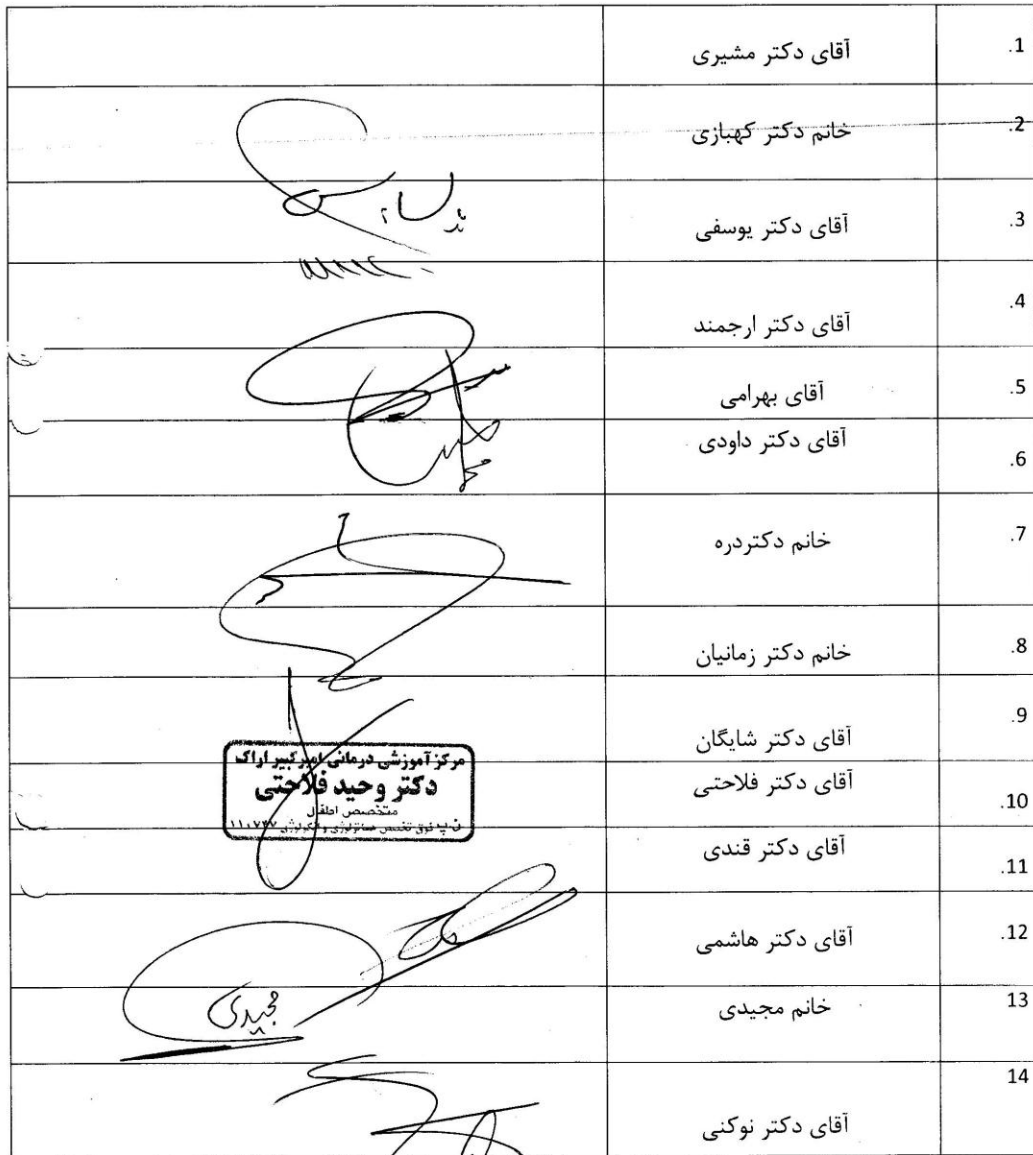 .1 آقای دکتر مشیری
.2 خانم دکتر کهبازی
.3 آقای دکتر یوسفی
.4 آقای دکتر ارجمند
.5 آقای بهرامی
.6 آقای دکتر داودی
.7 خانم دکتردره
.8 خانم دکتر زمانیان
.9 آقای دکتر شایگان
مرکز آموزشی درمانی امیرکبیر اراک
دکتر وحید فلاحتی
متخصص اطفال
.10 آقای دکتر فلاحتی
.11 آقای دکتر قندی
.12 آقای دکتر هاشمی
13 خانم مجیدی
مجیدی
14 آقای دکتر نوکنی